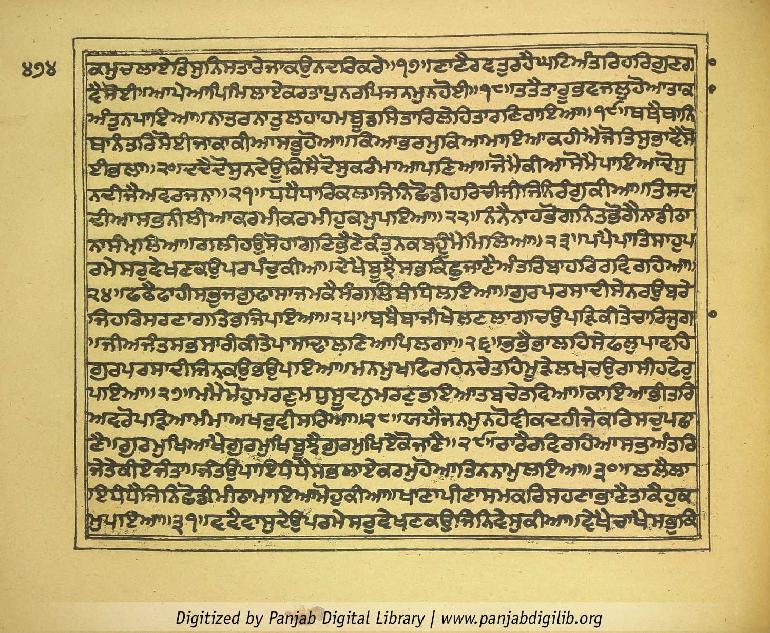 ੪੭੪
ਕਮੁਚਲਾਏਤਿਸੁਨਿਸਤਾਰੇਜਾਕਉਨਦਰਿਕਰੇ॥੧੭॥ਣਾਣੈਰਵਤੁਰਹੈਘਟਿਅੰਤਰਿਹਰਿਗੁਣਗਾ
ਵੈਸੋਈ॥ਆਪੇਆਪਿਮਿਲਾਏਕਰਤਾਪੁਨਰਪਿਜਨਮੁਨਹੋਈ॥੧੮॥ਤਤੈਤਾਰੂਭਵਜਲੁਹੋਆਤਾਕਾ
ਅੰਤੁਨਪਾਇਆ॥ਨਾਤਰਨਾਤੁਲਹਾਹਮਬੂਡਸਿਤਾਰਿਲੇਹਿਤਾਰਣਿਰਾਇਆ॥੧੯॥ਥਥੈਥਾਨਿ
ਥਾਨੰਤਰਿਸੋਈਜਾਕਾਕੀਆਸਭੁਹੋਆ॥ਕਿਆਭਰਮੁਕਿਆਮਾਇਆਕਹੀਐਜੋਤਿਸੁਭਾਵੈਸੋ
ਈਭਲਾ॥੨੦॥ਦਦੈਦੋਸੁਨਦੇਊਕਿਸੈਦੋਸੁਕਰੰਮਾਆਪਣਿਆ॥ਜੋਮੈਕੀਆਸੋਮੈਪਾਇਆਦੋਸੁ
ਨਦੀਜੈਅਵਰਜਨਾ॥੨੧॥ਧਧੈਧਾਰਿਕਲਾਜਿਨਿਛੋਡੀਹਰਿਚੀਜੀਜਿਨਿਰੰਗਕੀਆ॥ਤਿਸਦਾ
ਦੀਆਸਭਨੀਲੀਆਕਰਮੀਕਰਮੀਹੁਕਮੁਪਾਇਆ॥੨੨॥ਨੰਨੈਨਾਹਭੋਗਨਿਤਭੋਗੈਨਾਡੀਠਾ
ਨਾਸੰਮਲਿਆ॥ਗਲੀਹਉਸੋਹਾਗਣਿਭੈਣੇਕੰਤੁਨਕਬਹੂੰਮੈਮਿਲਿਆ॥੨੩॥ਪਪੈਪਾਤਿਸਾਹੁਪ
ਰਮੇਸਰੁਵੇਖਣਕਉਪਰਪੰਚੁਕੀਆ॥ਦੇਖੈਬੂਝੈਸਭੁਕਿਛੁਜਾਣੈਅੰਤਰਿਬਾਹਰਿਰਵਿਰਹਿਆ॥
੨੪॥ਫਫੈਫਾਹੀਸਭੁਜਗੁਫਾਸਾਜਮਕੈਸੰਗਲਿਬੰਧਿਲਇਆ॥ਗੁਰਪਰਸਾਦੀਸੇਨਰਉਬਰੇ
ਜਿਹਰਿਸਰਣਾਗਤਿਭਜਿਪਇਆ॥੨੫॥ਬਬੈਬਾਜੀਖੇਲਣਲਾਗਾਚਉਪੜਿਕੀਤੇਚਾਰਿਜੁਗਾ
॥ਜੀਅਜੰਤਸਭਸਾਰੀਕੀਤੇਪਾਸਾਢਾਲਣਿਆਪਿਲਗਾ॥੨੬॥ਭਭੈਭਾਲਹਿਸੇਫਲੁਪਾਵਹਿ
ਗੁਰਪਰਸਾਦੀਜਿਨ੍ਹਕਉਭਉਪਇਆ॥ਮਨਮੁਖਫਿਰਹਿਨਚੇਤਹਿਮੂੜੇਲਖਚਉਰਾਸੀਹਫੇਰੁ
ਪਇਆ॥੨੭॥ਮੰਮੈਮੋਹੁਮਰਣੁਮਧੁਸੂਦਨੁਮਰਣੁਭਇਆਤਬਚੇਤਵਿਆ॥ਕਾਇਆਭੀਤਰਿ
ਅਵਰੋਪੜਿਆਮੰਮਾਅਖਰੁਵੀਸਰਿਆ॥੨੮॥ਯਯੈਜਨਮੁਨਹੋਵੀਕਦਹੀਜੇਕਰਿਸਚੁਪਛਾ
ਣੈ॥ਗੁਰਮੁਖਿਆਖੈਗੁਰਮੁਖਿਬੂਝੈਗੁਰਮੁਖਿਏਕੋਜਾਣੈ॥੨੯॥ਰਾਰੈਰਵਿਰਹਿਆਸਭਅੰਤਰਿ
ਜੇਤੇਕੀਏਜੰਤਾ॥ਜੰਤਉਪਾਇਧੰਧੈਸਭਲਾਏਕਰਮੁਹੋਆਤਿਨਨਾਮੁਲਇਆ॥੩੦॥ਲਲੈਲਾ
ਇਧੰਧੈਜਿਨਿਛੋਡੀਮੀਠਾਮਾਇਆਮੋਹੁਕੀਆ॥ਖਾਣਾਪੀਣਾਸਮਕਰਿਸਹਣਾਭਾਣੈਤਾਕੈਹੁਕ
ਮੁਪਇਆ॥੩੧॥ਵਵੈਵਾਸੁਦੇਉਪਰਮੇਸਰੁਵੇਖਣਕਉਜਿਨਿਵੇਸੁਕੀਆ॥ਵੇਖੈਚਾਖੈਸਭੁਕਿ
Digitized by Panjab Digital Library | www.panjabdigilib.org